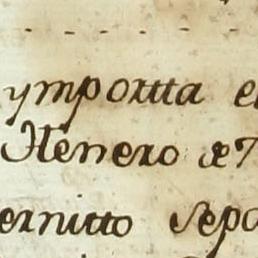 ymportta e
Henero de 7
ernitto sepo